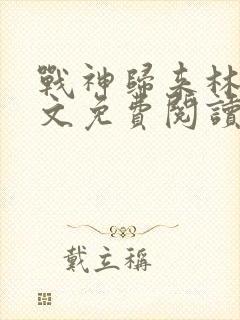 戰神歸来林
文免費閱讀
戴立稱